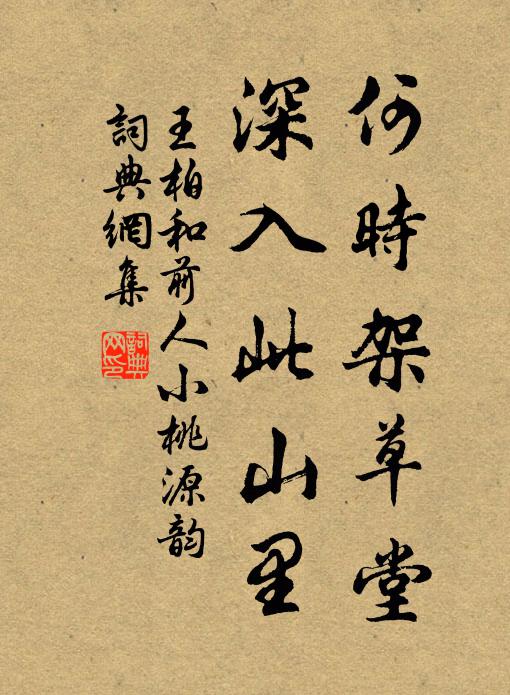 何時架草堂
深入此山里
王柏和前人小桃源韵
詞典網集
詞典網印